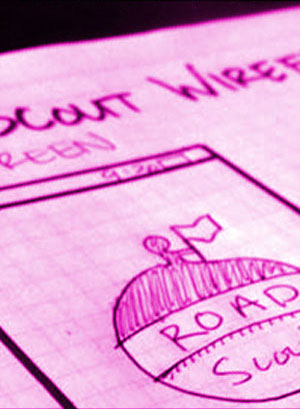 SCOUT WIREF
REEN
ROAD
Scou